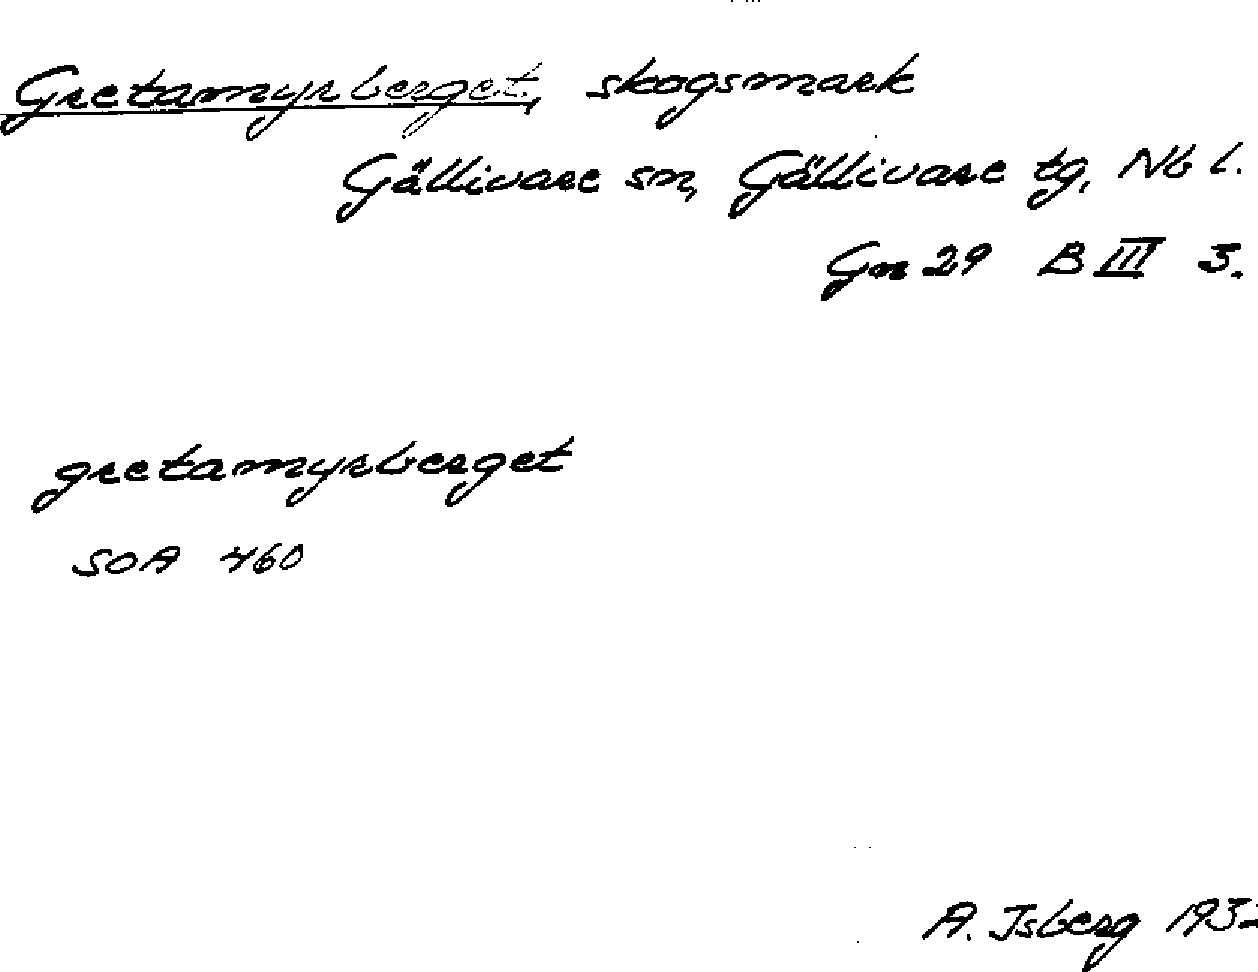 Gretamyrberget, skogsmark
Gällivare sn, Gällivare tg, Nb l.
Gn 29 B III 3.
gretamyrberget
SOA 460
A. Isberg